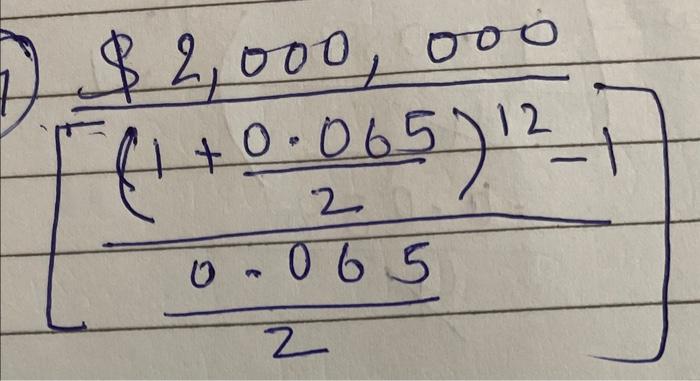 1) $2,000,000
[(1 + 0.065/2)^12 - 1
0.065
2]